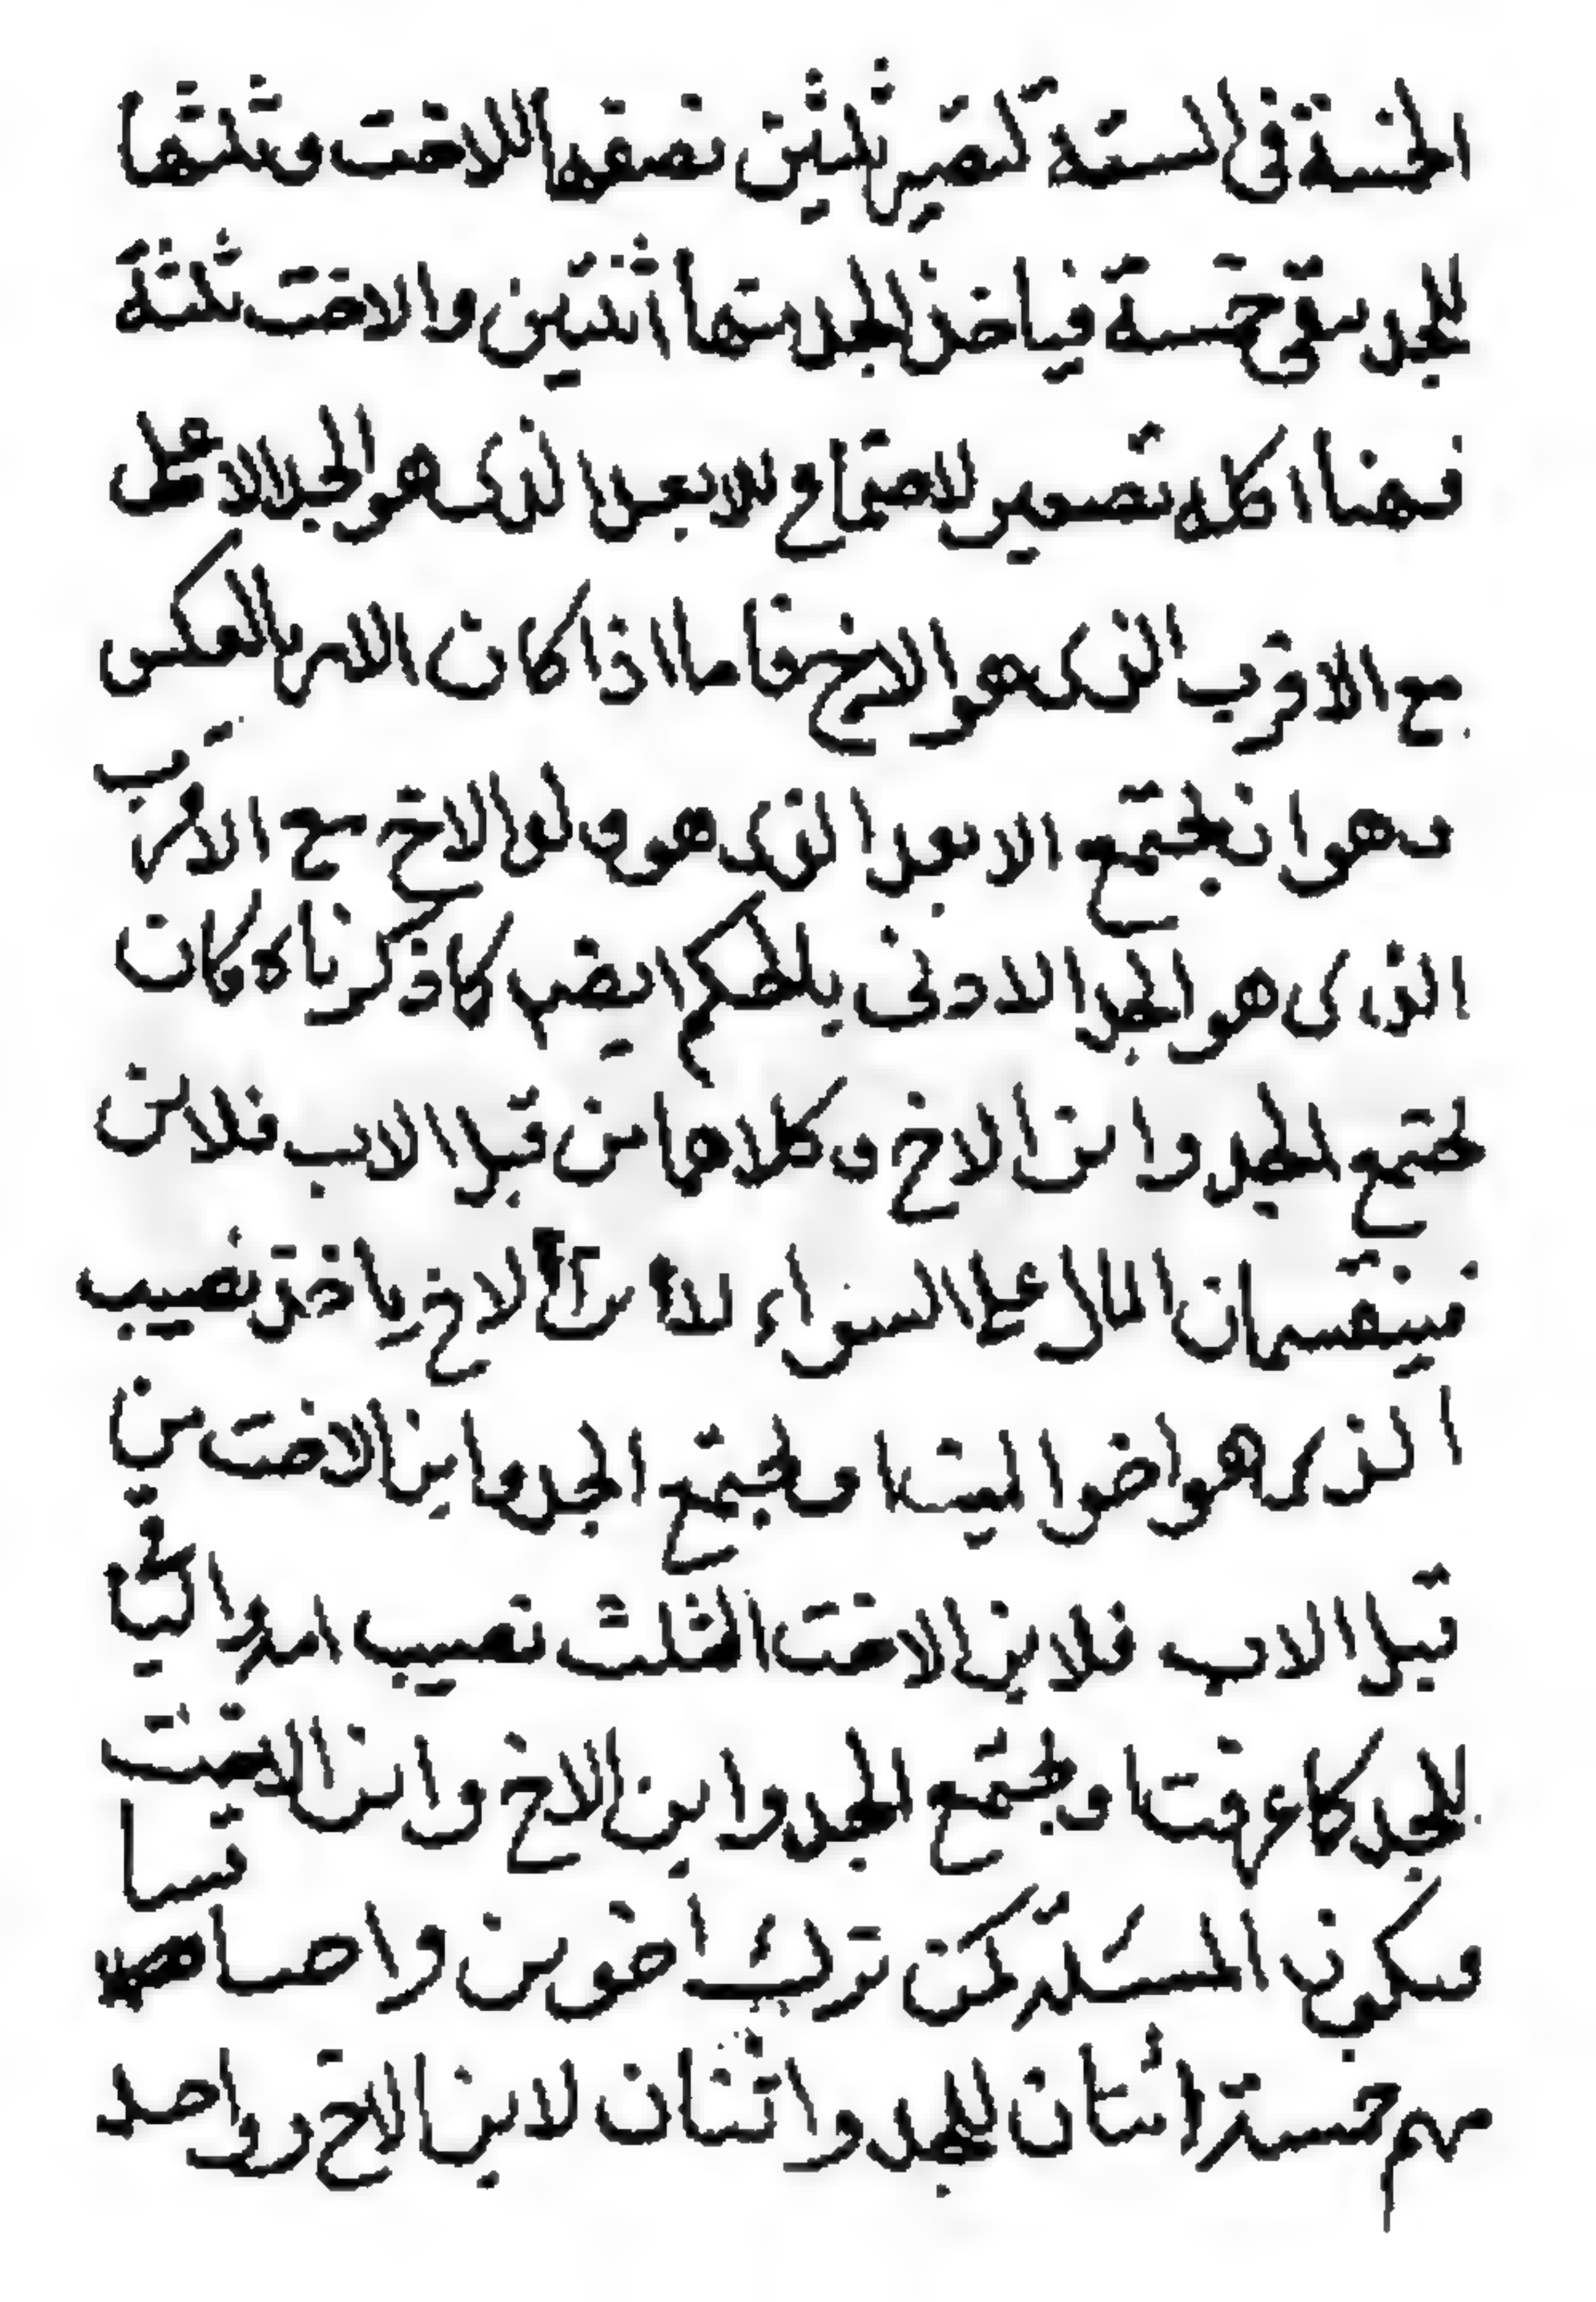 الخمسة فى الستة تصير ثلثين نصفها للاخت وثلثها
للجد يبقى خمسة فياخذ الجد منها اثنتين والاخت ثلثة
فهنا كله تصوير لاجتماع للابعد الذى هو الجد الاعلى
مع الاقرب الذى هو الاخ فاما اذا كان الامر بالعكس
وهو ان يجتمع الابعد الذى هو ولد الاخ مع الاقرب
الذى هو الجد الادنى فالحكم ايضا كما ذكرناه فان
يجتمع الجد وابن الاخ وكلاهما من قبل الاب فلابن
فينقسمان المال على السواء لان ابن الاخ ياخذ نصيب
الذى هو اخو الميت او يجتمع الجد وابن الاخت من
قبل الاب فلابن الاخت الثلث نصيب امه والباقى
للجد كما عرفت او يجتمع الجد وابن الاخ وابن الاخت
فيكون المسئلة كمن ترك اخوين واختا
من خمسة اثنان للجد واثنان لابن الاخ وواحد